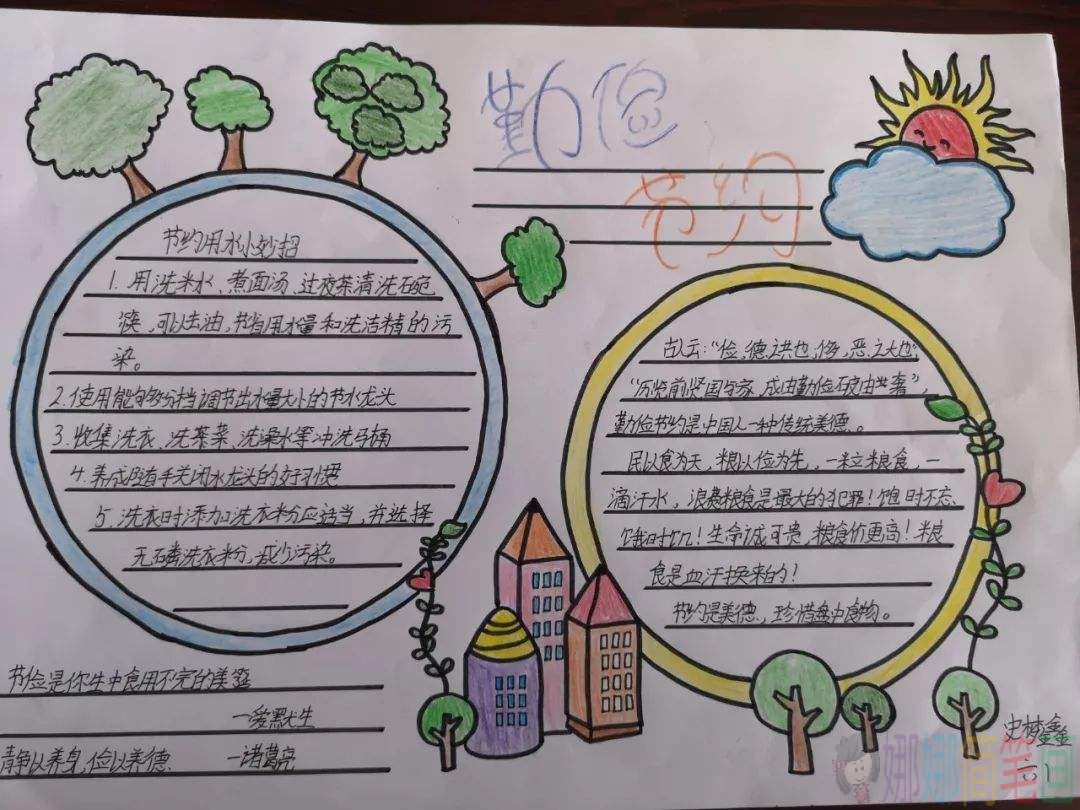 勤俭
节约
节约用水小妙招
1. 用洗米水、煮面汤、过夜茶清洗碗
筷，可以去油，节省用水量和洗洁精的污
染。
2.使用能够分档调节出水量大小的节水龙头
3.收集洗衣、洗菜、洗澡水等冲洗马桶
4.养成随手关闭水龙头的好习惯
5.洗衣时添加洗衣粉应适当，并选择
无磷洗衣粉，减少污染。
古人云：“俭，德之共也，侈，恶之大也”
“历览前贤国与家，成由勤俭破由奢”，
勤俭节约是中国人一种传统美德。
民以食为天，粮以俭为先，一粒粮食，一
滴汗水，浪费粮食是最大的犯罪！饱时不忘
饿时饥！生命诚可贵，粮食价更高！粮
食是血汗换来的！
节约是美德，珍惜盘中食物。
节俭是你生中食用不完的美筵
一爱默生
静以养身，俭以养德、 一诸葛亮
史梦鑫
六1
娜娜简笔画